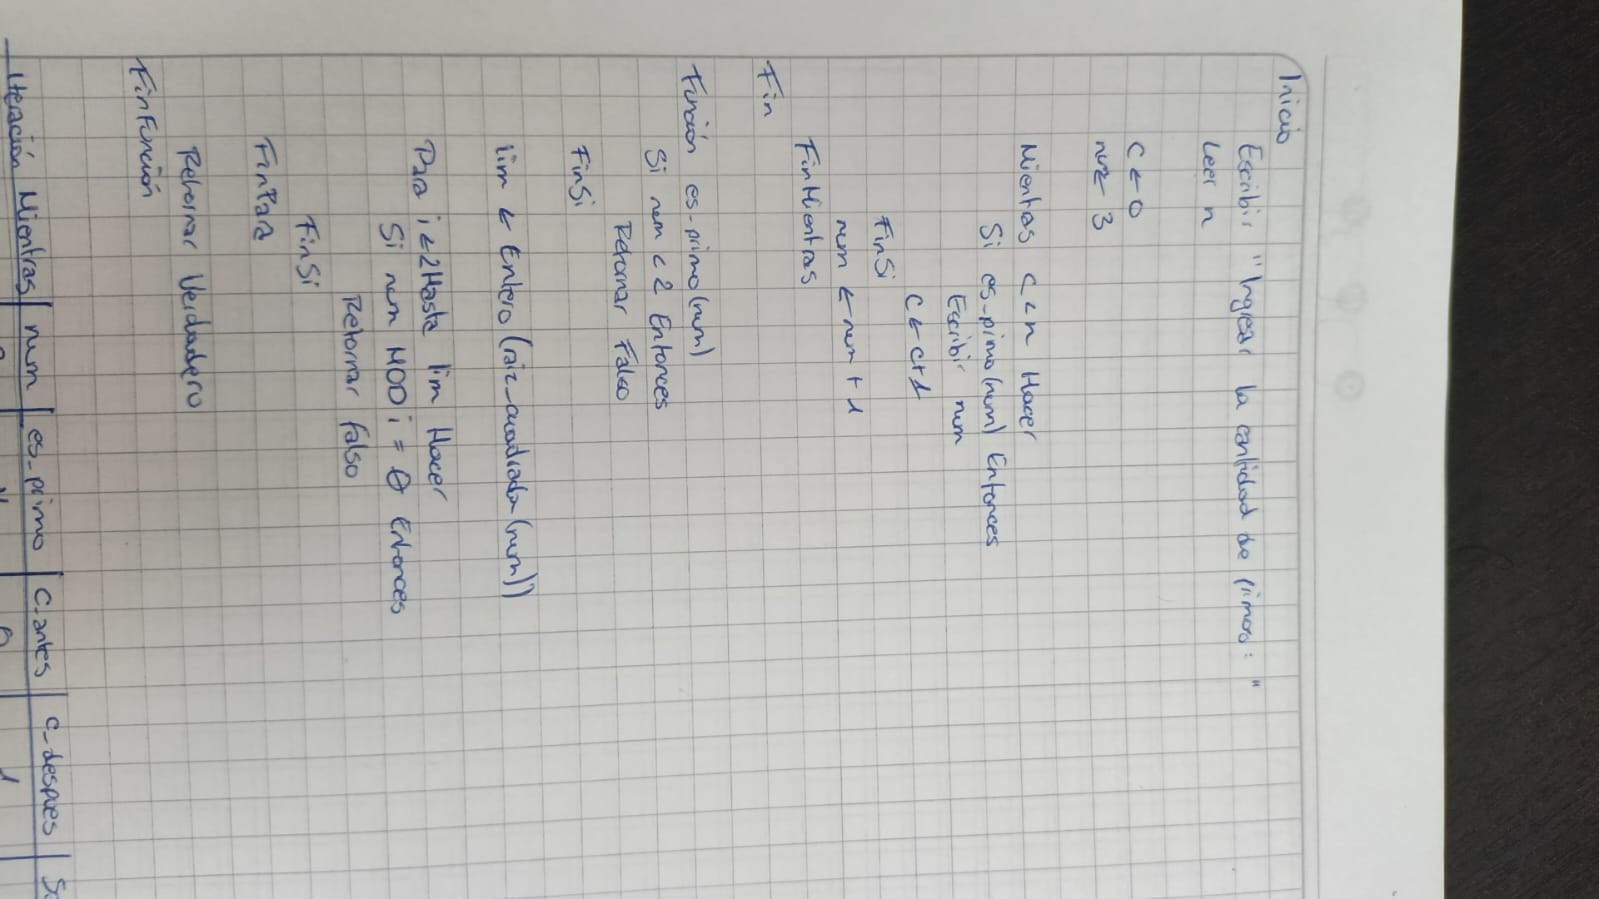 Inicio
Escribir "Ingresar la cantidad de primos: "
Leer n
C ← 0
num ← 3
Mientras C < n Hacer
Si es_primo(num) Entonces
Escribir num
C ← C+1
FinSi
num ← num + 1
FinMientras
Fin
Función es_primo(num)
Si num < 2 Entonces
Retornar Falso
FinSi
lim ← Entero (raiz_cuadrada (num))
Para i ← 2 Hasta lim Hacer
Si num MOD i = 0 Entonces
Retornar falso
FinSi
FinPara
Retornar Verdadero
FinFunción
Iteración Mientras | num | es_primo | C_antes | C_despues |